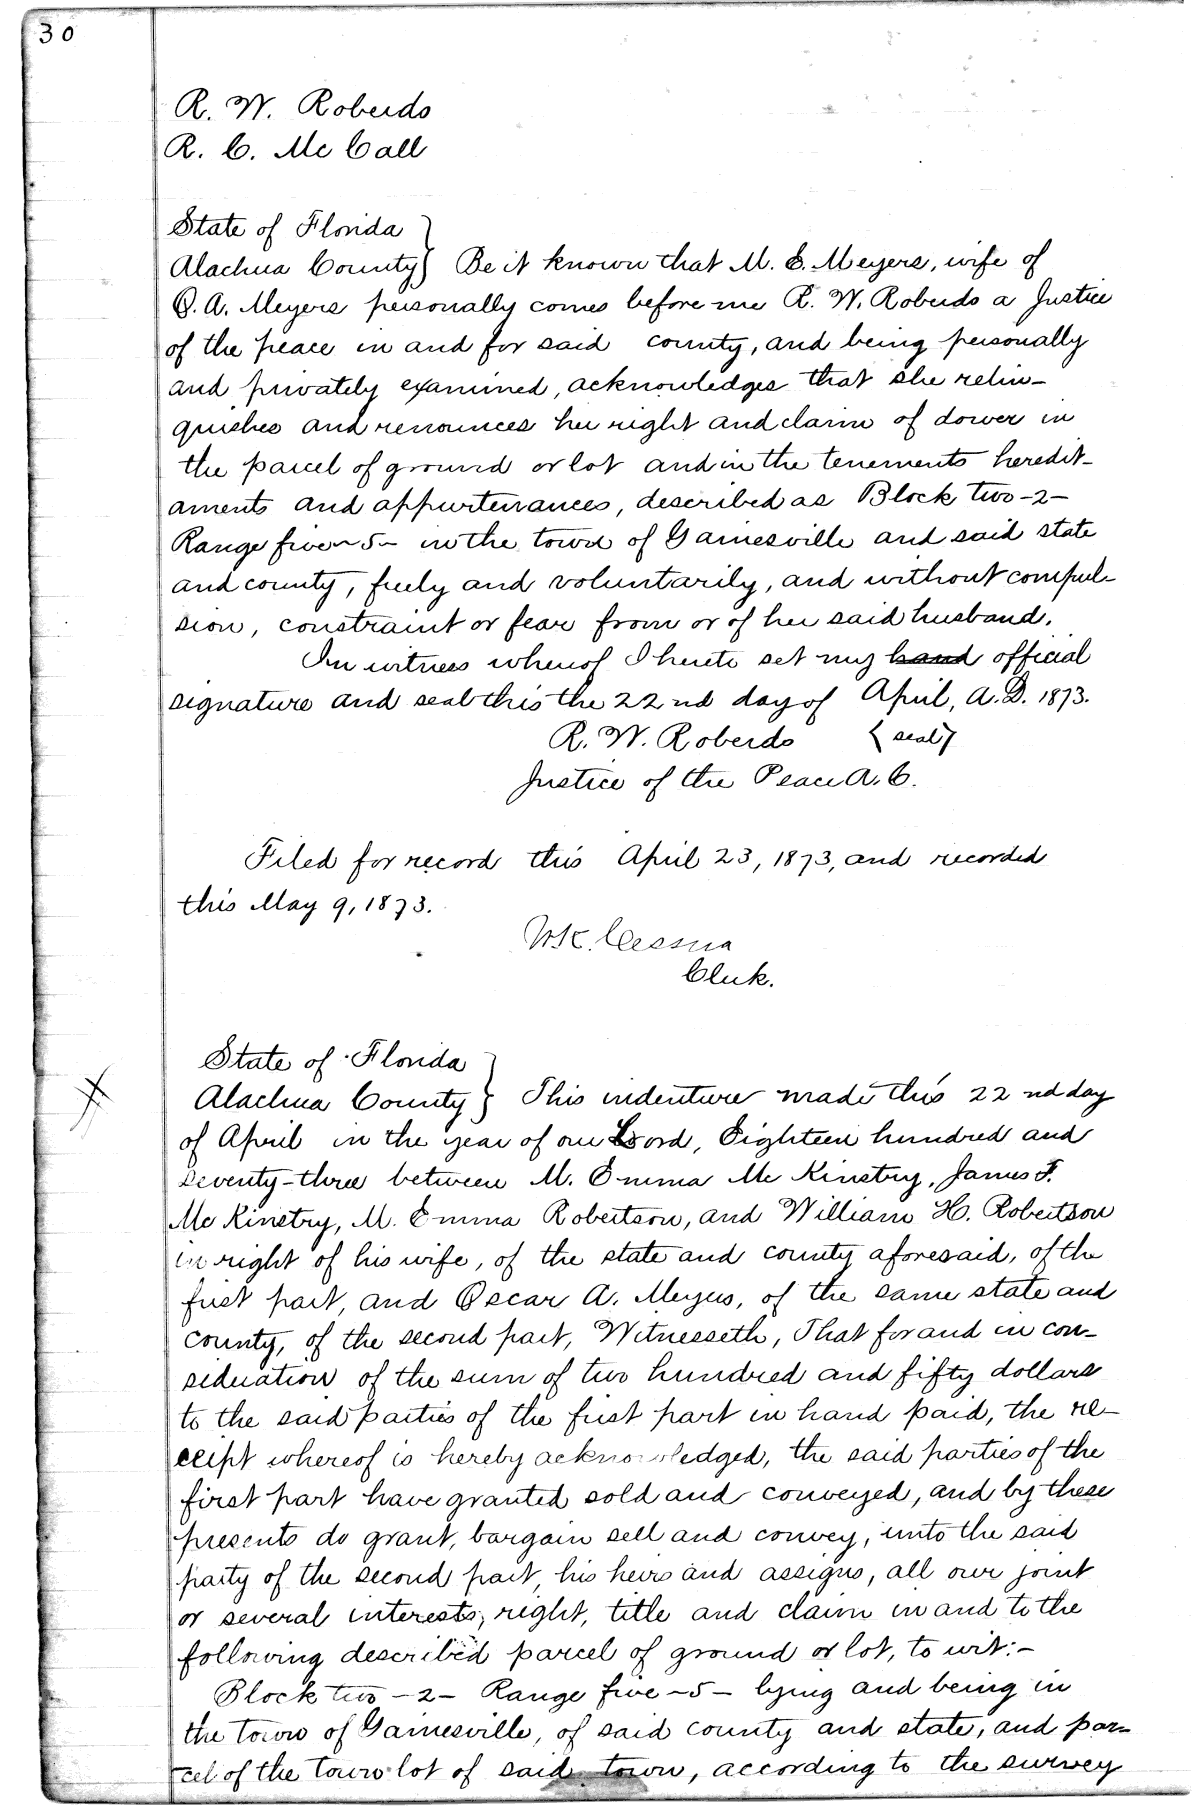 30
R. W. Roberds
R. C. Mc Call
State of Florida }
Alachua County } Be it known that M. E. Meyers, wife of
O. A. Meyers personally comes before me R. W. Roberds a Justice
of the peace in and for said county, and being personally
and privately examined, acknowledges that she relin-
quishes and renounces her right and claim of dower in
the parcel of ground or lot and in the tenements heredit-
aments and appurtenances, described as Block two -2-
Range five -5- in the town of Gainesville and said state
and county, freely and voluntarily, and without compul-
sion, constraint or fear from or of her said husband.
In witness whereof I hereto set my hand official
signature and seal this the 22nd day of April, A.D. 1873.
R. W. Roberds {seal}
Justice of the Peace A. C.
Filed for record this April 23, 1873, and recorded
this May 9, 1873.
W.K. Cessna
Clerk.
State of Florida }
Alachua County } This indenture made this 22nd day
of April in the year of our Lord, Eighteen hundred and
seventy-three between M. Emma Mc Kinstry, James F.
Mc Kinstry, M. Emma Robertson, and William H. Robertson
in right of his wife, of the state and county aforesaid, of the
first part, and Oscar A. Meyers, of the same state and
county, of the second part, Witnesseth, That for and in con-
sideration of the sum of two hundred and fifty dollars
to the said parties of the first part in hand paid, the re-
ceipt whereof is hereby acknowledged, the said parties of the
first part have granted sold and conveyed, and by these
presents do grant, bargain sell and convey, unto the said
party of the second part, his heirs and assigns, all our joint
or several interests, right, title and claim in and to the
following described parcel of ground or lot, to wit:-
Block two -2- Range five -5- lying and being in
the town of Gainesville, of said county and state, and par-
cel of the town lot of said town, according to the survey